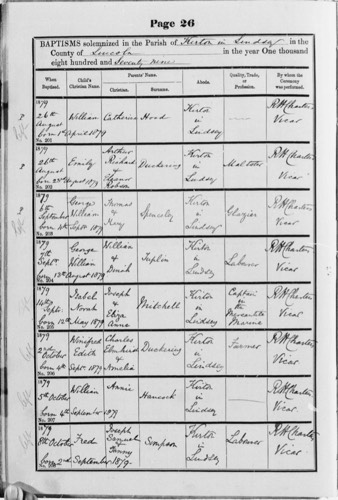 Page 26
BAPTISMS solemnized in the Parish of Kirton in Lindsey in the
County of Lincoln in the year One thousand
eight hundred and Seventy nine
When Baptized. Child's Christian Name. Parents' Name. Christian. Surname. Abode. Quality, Trade, or Profession. By whom the Ceremony was performed.
1879
26th August William Catherine Hood Kirton in Lindsey R H Charters Vicar
born 1st April 1879
No. 201
1879
26th August Emily Arthur Richard & Eleanor Duckering Kirton in Lindsey Maltster R H Charters Vicar
born August 1879
No. 202
1879
6th September George William Thomas & Mary Kirton in Lindsey Glazier R H Charters Vicar
born Sept 1879
No. 203
1879
7th Sept. George William William & Dinah Taplin Kirton in Lindsey Labourer R H Charters Vicar
born 13th August 1879
No. 204
1879
14th Sept. Isabel Norah Joseph & Eliza Anne Mitchell Kirton in Lindsey Captain in the Mercantile Marine R H Charters Vicar
born 12th May 1879
No. 205
1879
2nd October Winifred Edith Charles & Amelia Duckering Kirton in Lindsey Farmer R H Charters Vicar
born 4th Sept. 1879
No. 206
1879
5th October William Annie Hancock Kirton in Lindsey R H Charters Vicar
born 4th September 1879
No. 207
1879
8th October Fred Joseph Samuel & Fanny Sompson Kirton in Lindsey Labourer R H Charters Vicar
born 2nd September 1879